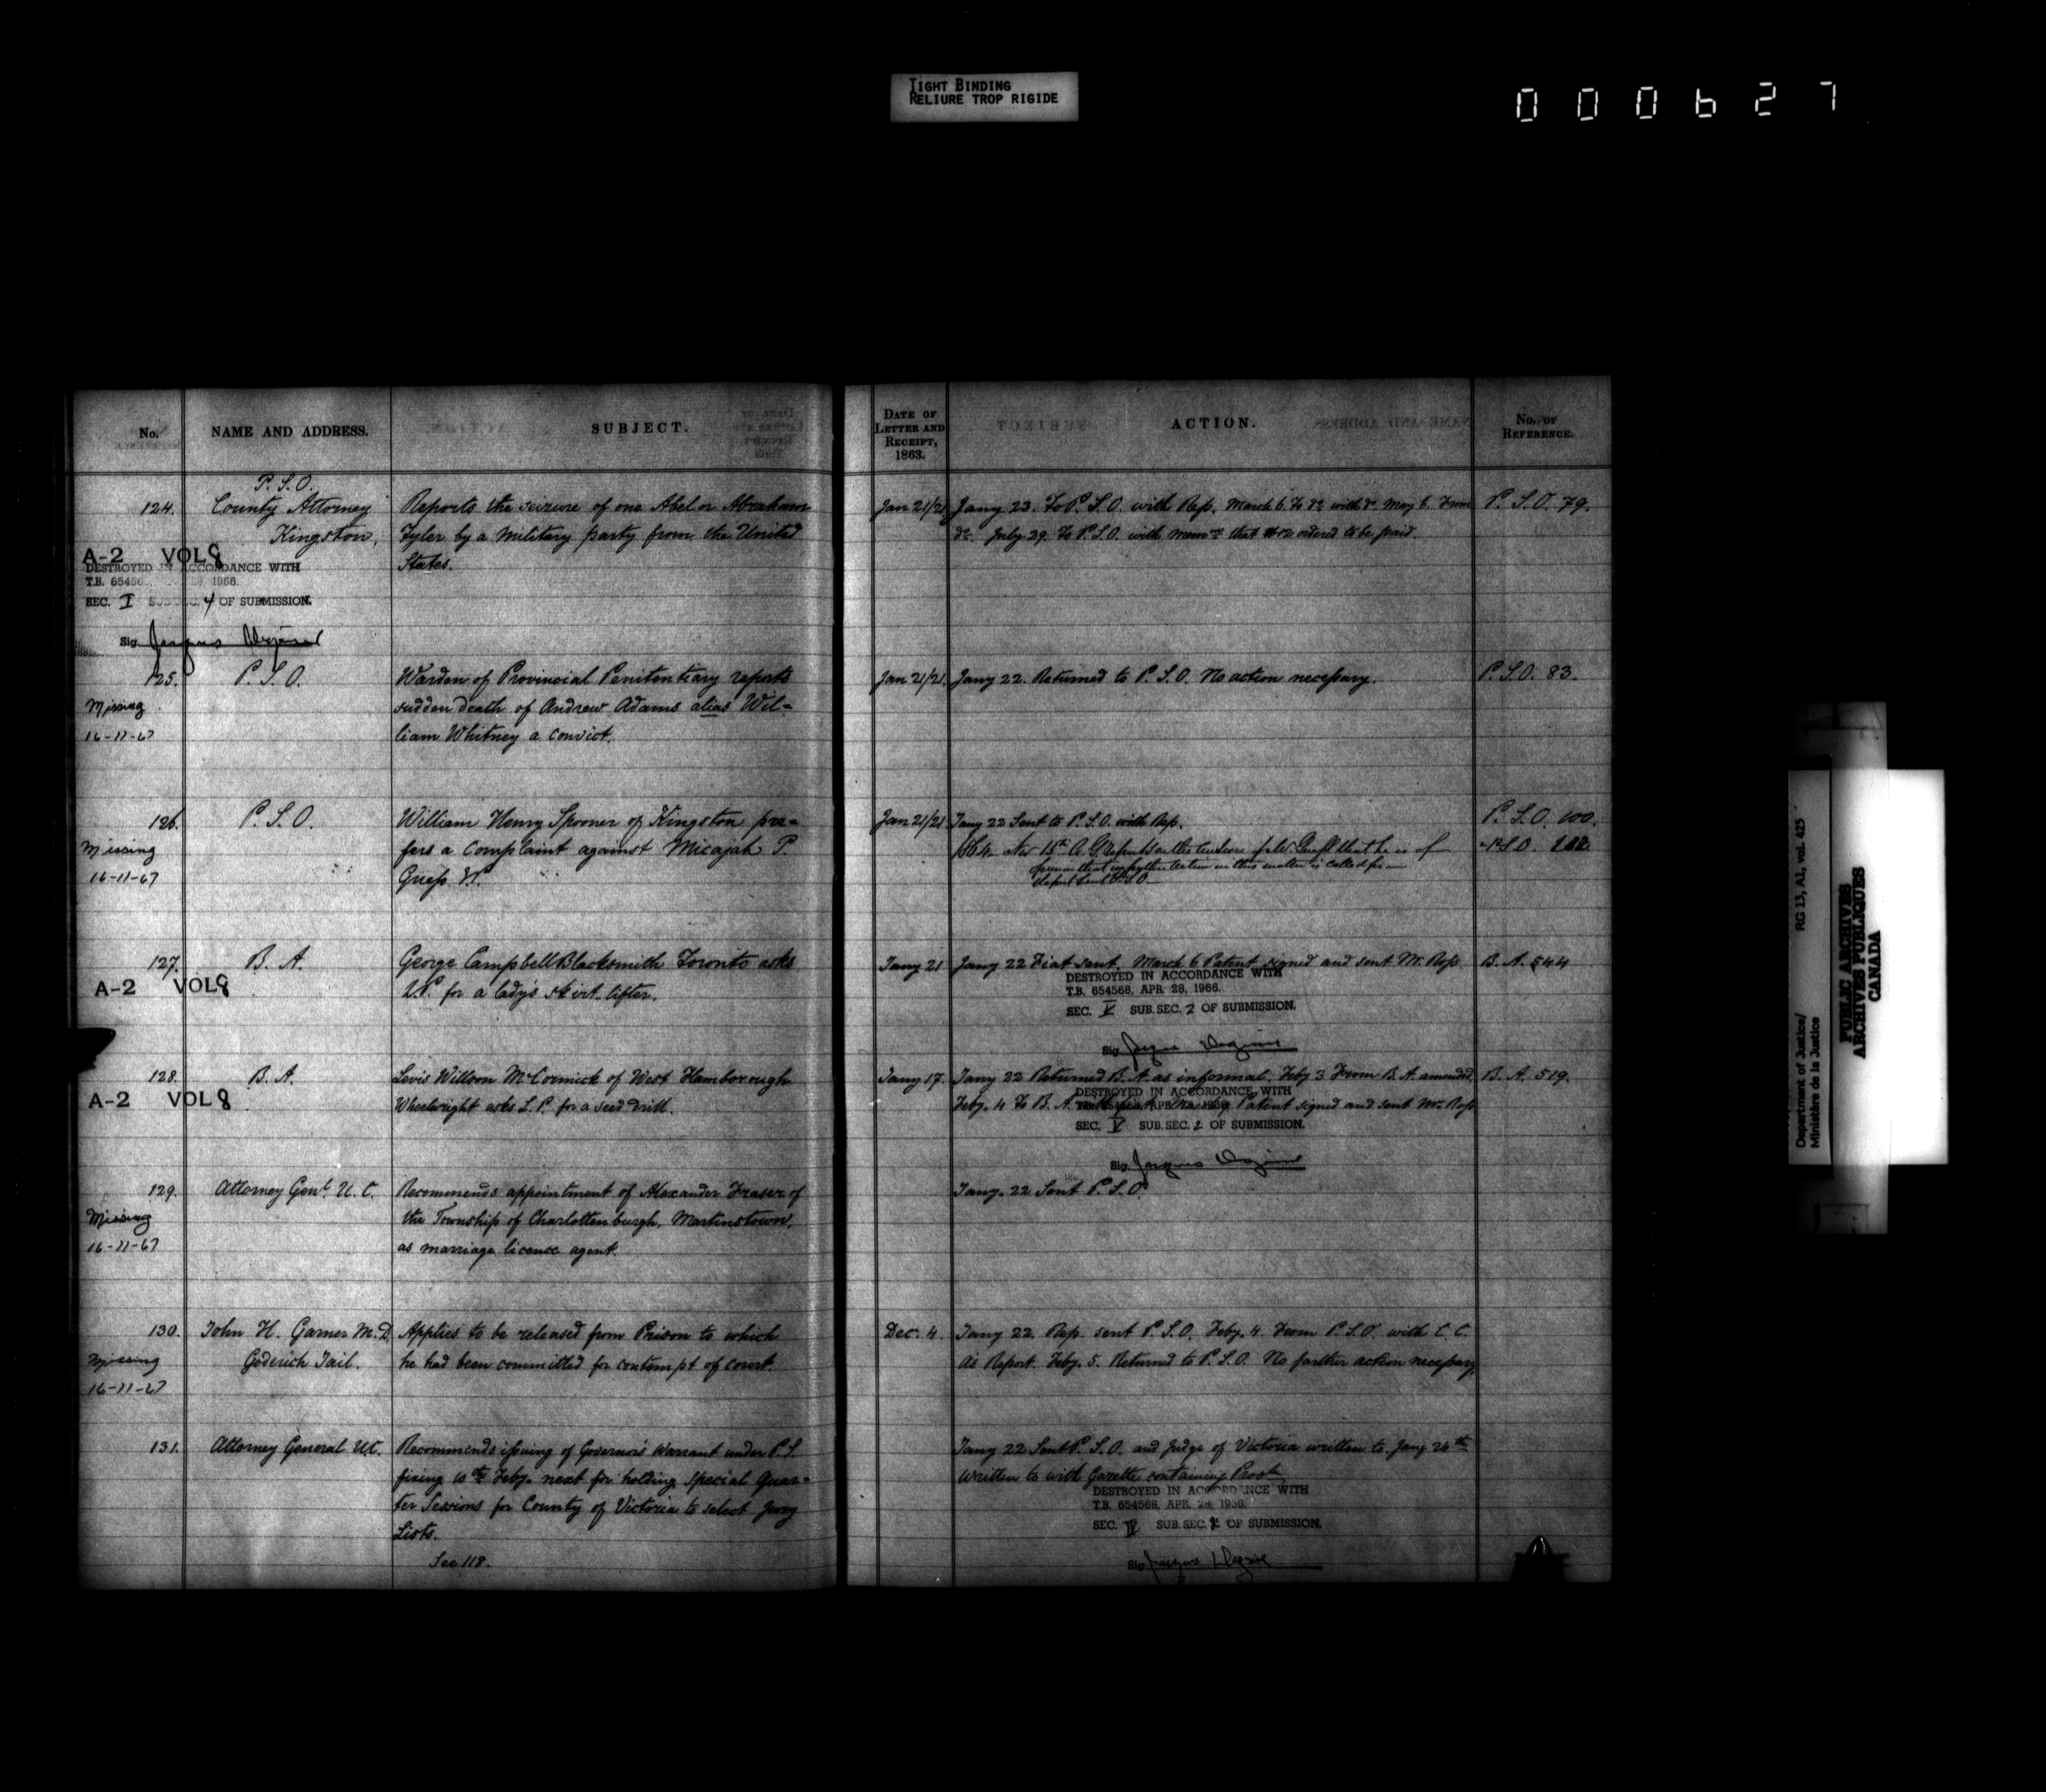 TIGHT BINDING
RELIURE TROP RIGIDE
000627
No.
NAME AND ADDRESS.
SUBJECT.
DATE OF LETTER AND RECEIPT, 1863.
ACTION.
No. OF REFERENCE.
P.S.O.
124. County Attorney Reports the seizure of one Abel or Abraham
Kingston, Tyler by a military party from the United
States.
A-2 VOL 8
DESTROYED IN ACCORDANCE WITH
SEC. I 4 OF SUBMISSION.
Sig.
Jan 21/21 Jany 23. To P.S.O. with Rep. March 6. To do with do May 6. From P.S.O. 79.
do July 29. To P.S.O. with that ordered to be paid.
125. P.S.O. Warden of Provincial Penitentiary reports
sudden death of Andrew Adams alias Wil=
liam Whitney a convict.
Missing
16-11-67
Jan 21/21. Jany 22. Returned to P.S.O. No action necessary. P.S.O. 83.
126. P.S.O. William Henry Spooner of Kingston pre=
fers a complaint against Micajah P.
Guess
Missing
16-11-67
Jan 21/21 Jany 22 Sent to P.S.O. with Rep. P.S.O. 100.
that he is of
in this matter is called for
Report sent P.S.O.
127. B.A. George Campbell Blacksmith Toronto asks
L.P. for a lady's skirt-lifter.
A-2 VOL 8
Jany 21 Jany 22 Fiat sent. March 6 Patent signed and sent Mr. Ross. B.A. 544
DESTROYED IN ACCORDANCE WITH
T.B. 654568, APR. 28, 1966.
SEC. V SUB.SEC. 2 OF SUBMISSION.
Sig.
128. B.A. Levis Willson McCormick of West Flamborough
Wheelwright asks L.P. for a seed drill.
A-2 VOL 8
Jany 17. Jany 22 Returned B.A. as informal. Feby 3 From B.A. amended. B.A. 519.
Feby. 4 To B.A. Patent signed and sent Mr. Ross
DESTROYED IN ACCORDANCE WITH
SEC. V SUB.SEC. 2 OF SUBMISSION.
Sig.
129. Attorney Genl. U.C. Recommends appointment of Alexander Fraser of
the Township of Charlottenburgh, Martinstown,
as marriage licence agent.
Missing
16-11-67
Jany. 22 Sent P.S.O.
130. John H. Garner M.D. Applies to be released from Prison to which
Goderich Jail. he had been committed for contempt of court.
Missing
16-11-67
Dec. 4. Jany 22. Rep. sent P.S.O. Feby. 4. From P.S.O. with C.C.
as Report. Feby. 5. Returned to P.S.O. No further action necessary.
131. Attorney General U.C. Recommends issuing of Governor's Warrant under P.S.
fixing 10th Feby. next for holding special Quar=
ter Sessions for County of Victoria to select Jury
Lists.
See 118.
Jany 22 Sent P.S.O. and Judge of Victoria written to. Jany 24th
written to with Gazette containing
DESTROYED IN ACCORDANCE WITH
T.B. 654568, APR. 28, 1966.
SEC. IV SUB.SEC. OF SUBMISSION.
Sig.
Department of Justice/
Ministère de la Justice
RG 13, A1, vol. 425
PUBLIC ARCHIVES
ARCHIVES PUBLIQUES
CANADA